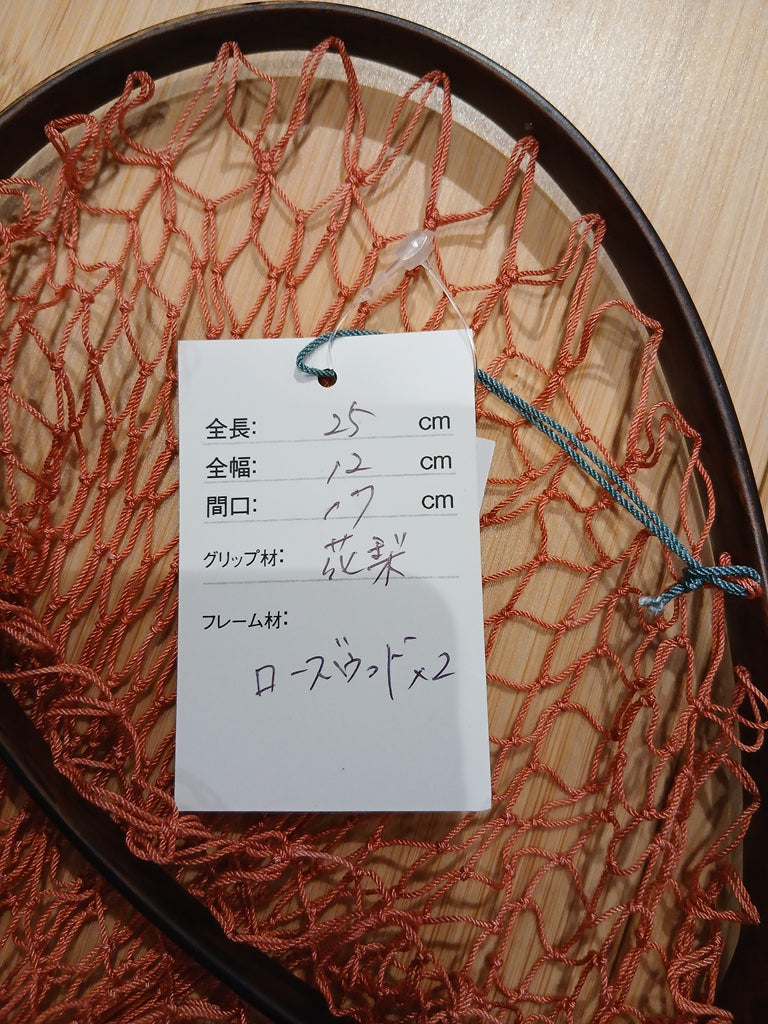 全長: 25 cm
全幅: 12 cm
間口: 17 cm
グリップ材: 花梨
フレーム材:
ローズウッド×2